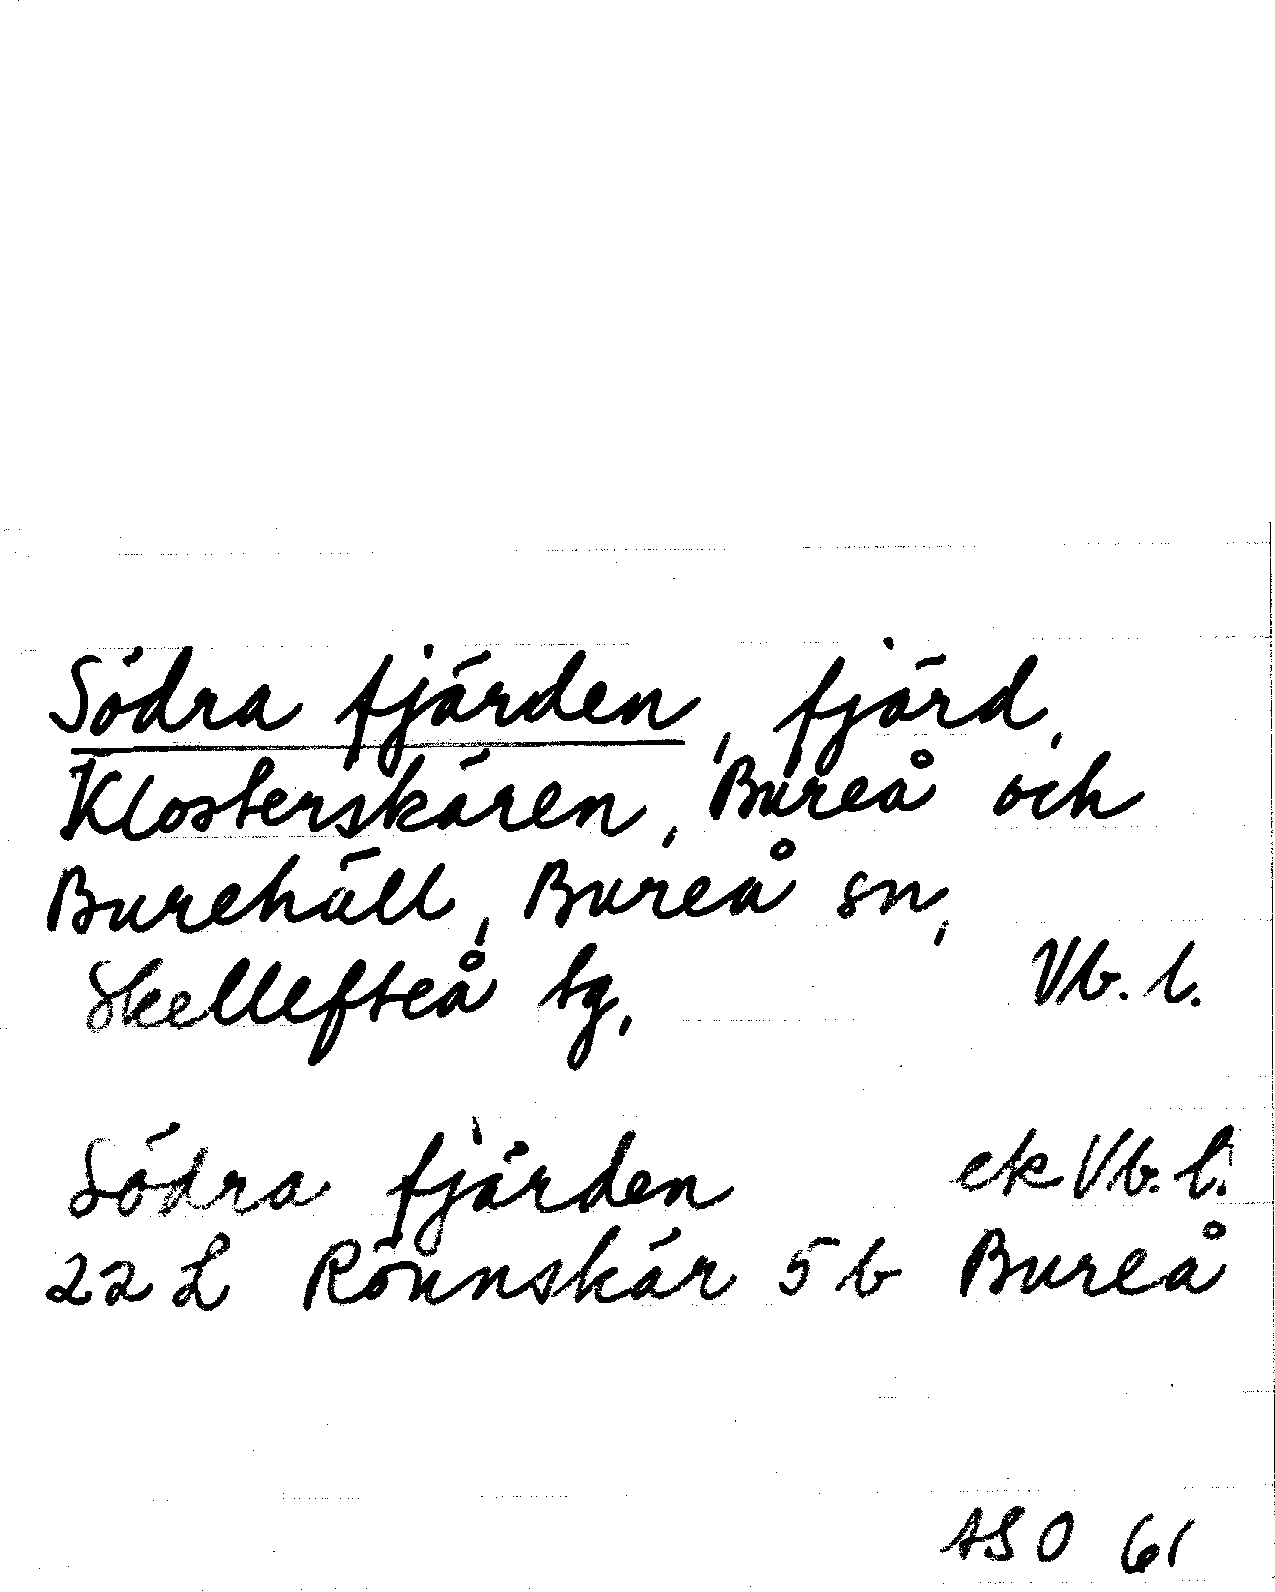 Södra fjärden, fjärd,
Klosterskären, Bureå och
Burehäll, Bureå sn,
Skellefteå tg, Vb. l.
Södra fjärden ek Vb. l.
22 L Rönnskär 5 b Bureå
ASO 61